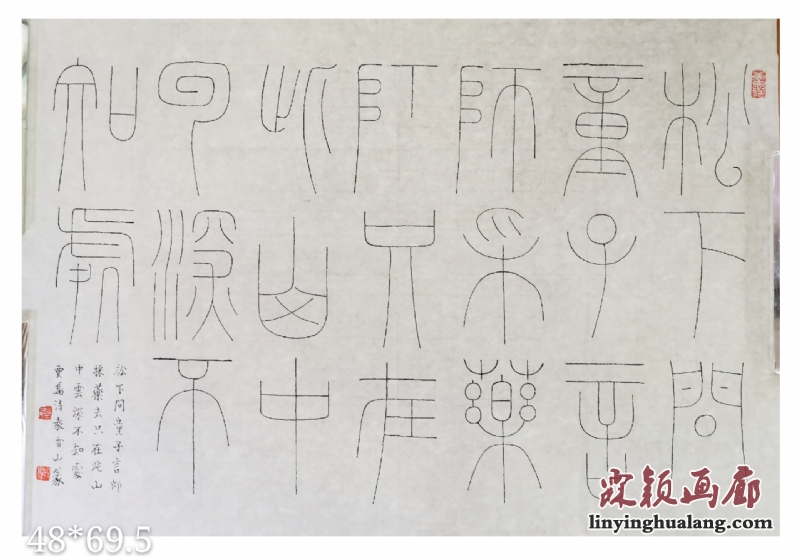 松下問
童子言
師采藥
只在
此山中
云深不
知處
松下問童子言師
採藥去只在此山
中雲深不知處
賈島詩袁雪山篆
48*69.5
霖颖画廊
linyinghualang.com